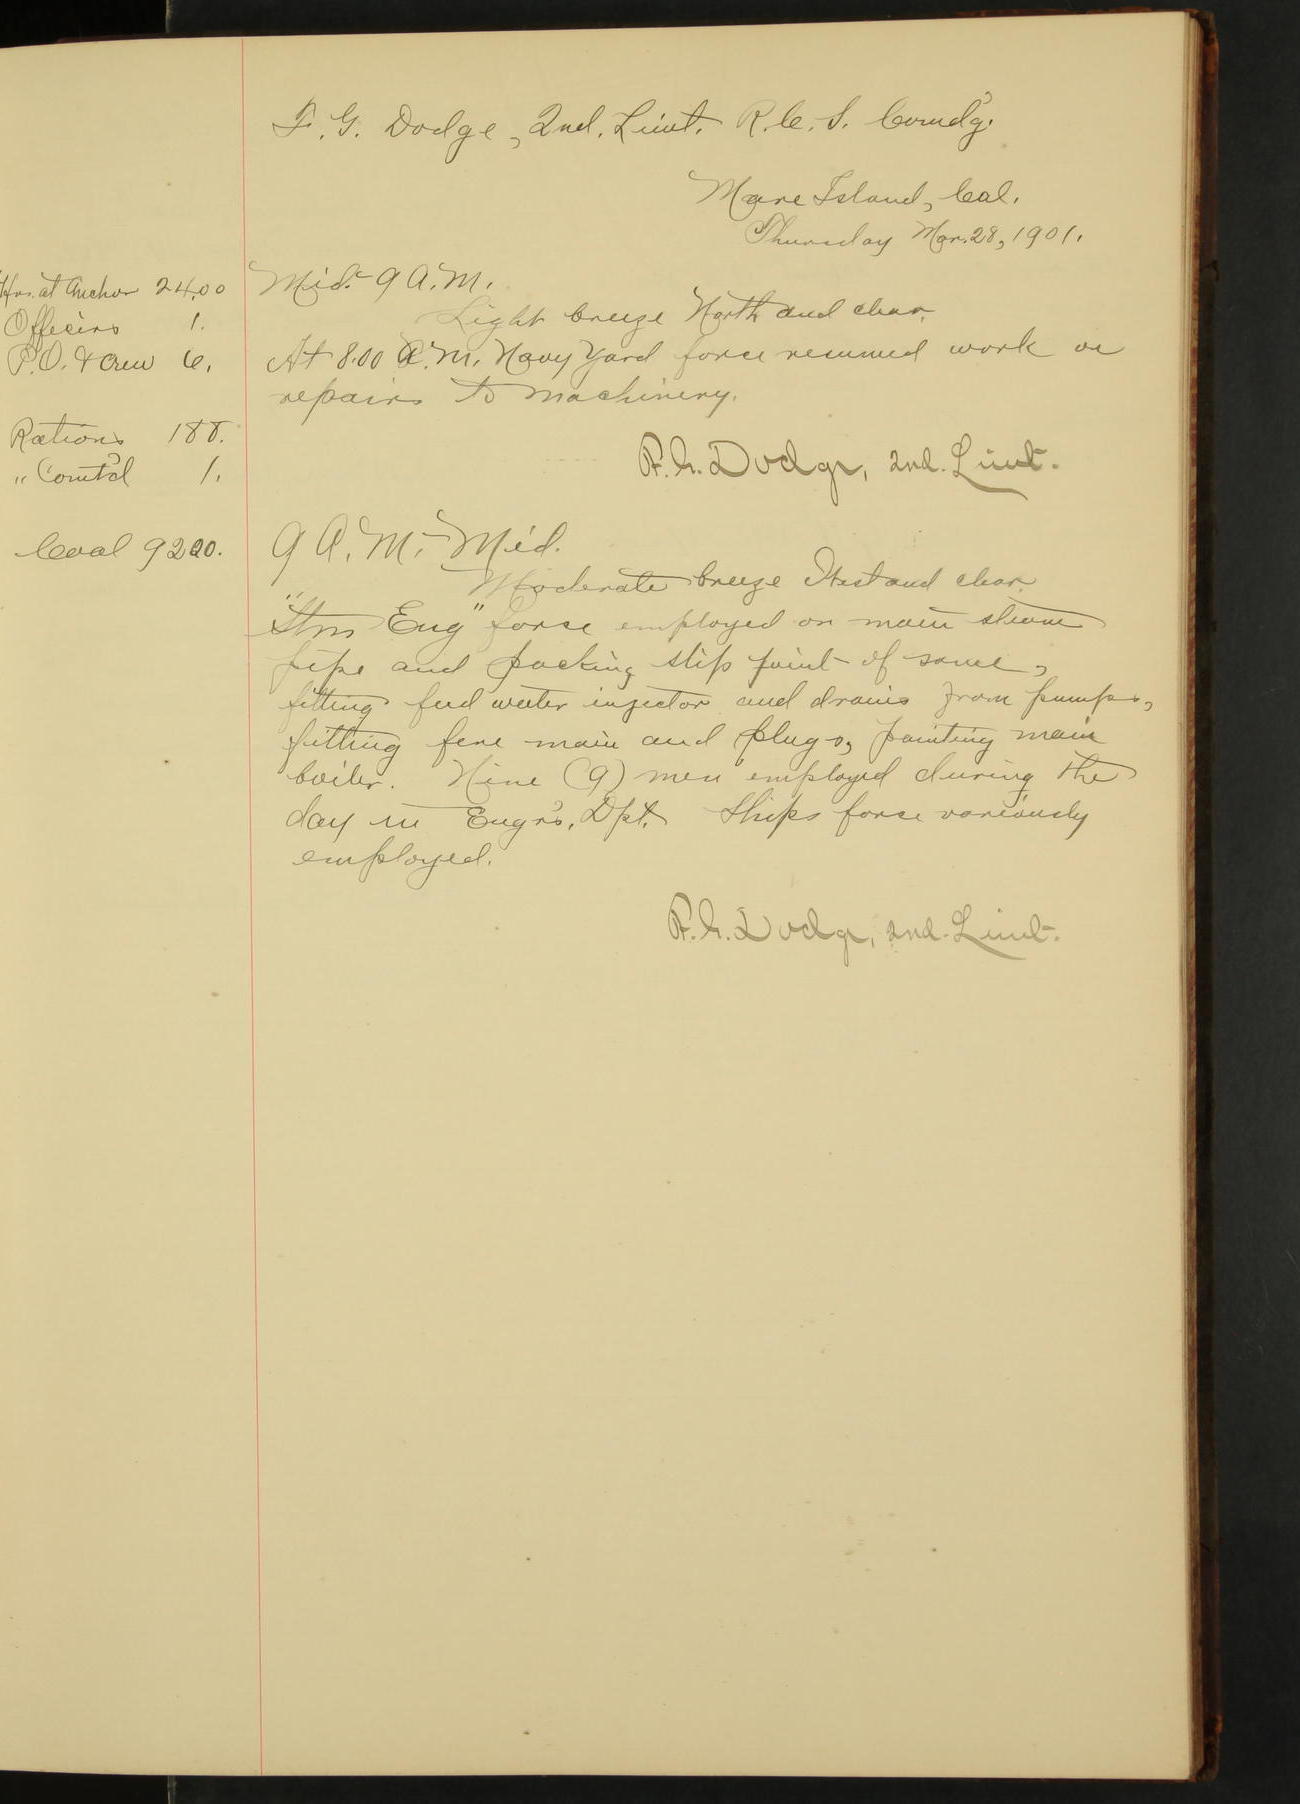 F. G. Dodge, 2nd. Lieut. R. C. S. Comd'g.
Mare Island, Cal.
Thursday Mar. 28, 1901.
Hrs. at Anchor 24.00
Officers 1.
P.O. & Crew 6.
Rations 188.
" Comt'd 1.
Coal 9200.
Mid. - 9 A.M.
Light breeze North and clear.
At 8.00 A.M. Navy Yard force resumed work on
repairs to machinery.
F. G. Dodge, 2nd. Lieut.
9 A.M. - Mid.
Moderate breeze West and clear.
"Stm Eng" force employed on main steam
pipe and packing slip joint of same,
fitting feed water injector and drains from pumps,
fitting fire main and plugs, painting main
boiler. Nine (9) men employed during the
day in Engr's. Dpt. Ships force variously
employed.
F. G. Dodge, 2nd. Lieut.